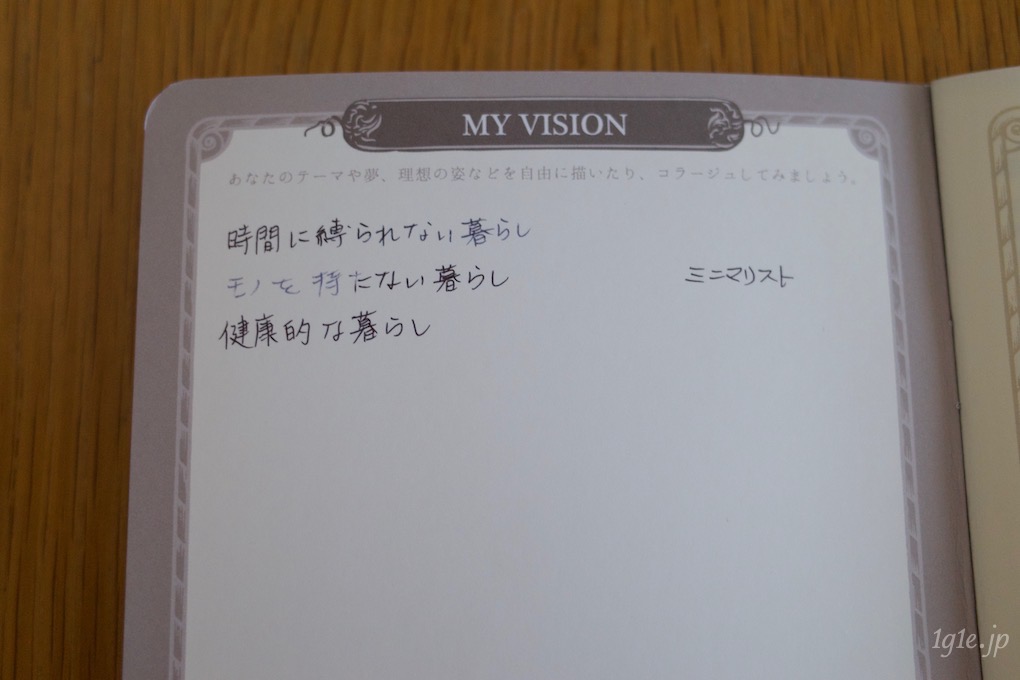 MY VISION
あなたのテーマや夢、理想の姿などを自由に描いたり、コラージュしてみましょう。
時間に縛られない暮らし
モノを持たない暮らし ミニマリスト
健康的な暮らし
1g1e.jp